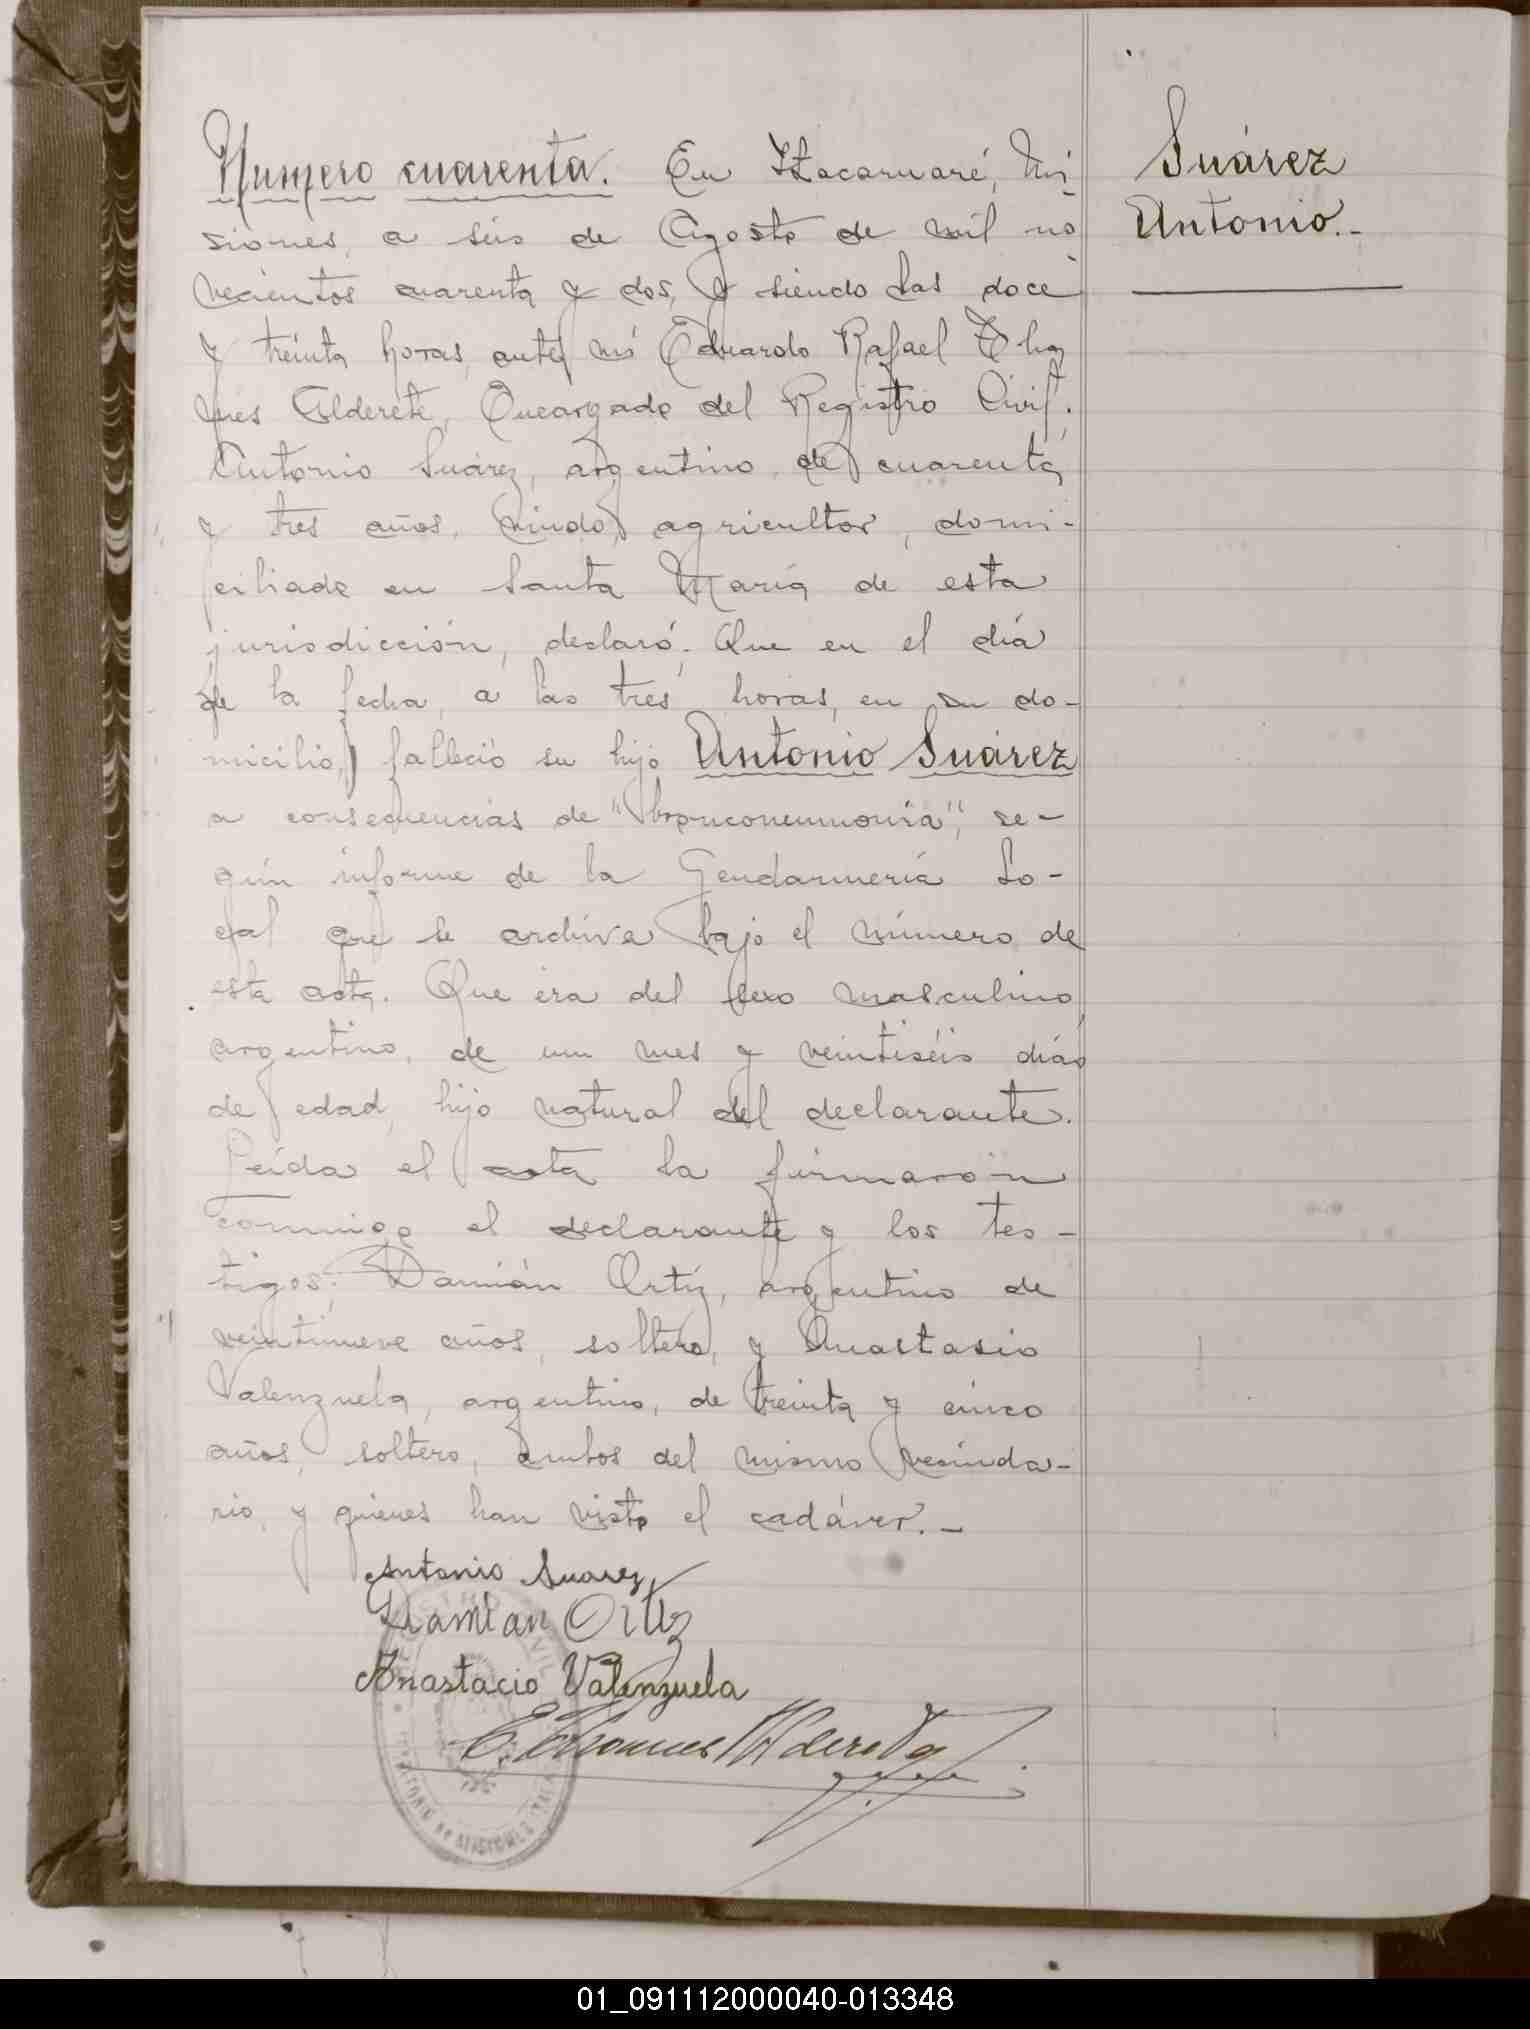 Numero cuarenta. En Itacaruaré, Mi-
siones, a seis de Agosto de mil no-
vecientos cuarenta y dos, y siendo las doce
y treinta horas, ante mí Eduardo Rafael
Alderete, Encargado del Registro Civil,
Antonio Suárez, argentino, de cuarenta
y tres años, viudo, agricultor, domi-
ciliado en Santa María de esta
jurisdicción, declaró: Que en el día
de la fecha, a las tres horas, en su do-
micilio, falleció su hijo Antonio Suárez
a consecuencias de "bronconeumonía", se-
gún informe de la Gendarmería Lo-
cal que se archiva bajo el número de
esta acta. Que era del sexo masculino,
argentino, de un mes y veintiséis días
de edad, hijo natural del declarante.
Leída el acta la firmaron
conmigo el declarante y los tes-
tigos: Damián Ortiz, argentino de
veintinueve años, soltero, y Anastasio
Valenzuela, argentino, de treinta y cinco
años, soltero, ambos del mismo vecinda-
rio, y quienes han visto el cadáver.-
Antonio Suarez
Damian Ortiz
Anastacio Valenzuela
Suárez
Antonio.-
01_091112000040-013348